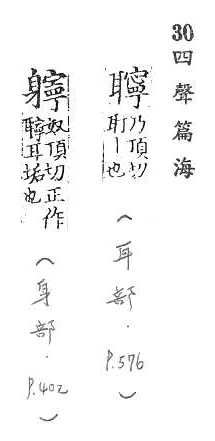 30四聲篇海
聹
乃頂切
耵丨也
(耳部.P.576)
奴頂切正作
聹耳垢也
(身部.P.402)